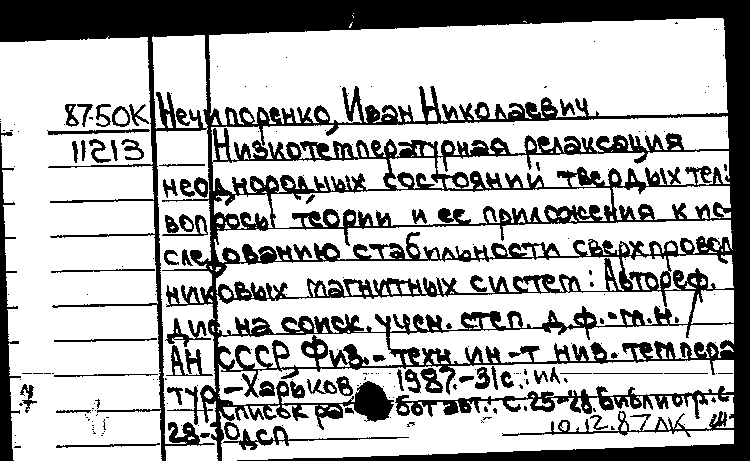 87-50К Нечипоренко, Иван Николаевич.
11213 Низкотемпературная релаксация
неоднородных состояний твердых тел:
вопросы теории и ее приложения к ис-
следованию стабильности сверхпровод
никовых магнитных систем: Автореф.
дис. на соиск. учен. степ. д.ф.-м.н. /
АН СССР Физ.-техн. ин-т низ. темпера
тур.-Харьков 1987.-31с.:ил.
Список ра- бот авт.: с.25-28. Библиогр.: с.
28-30 ДСП 10.12.87 ЛК